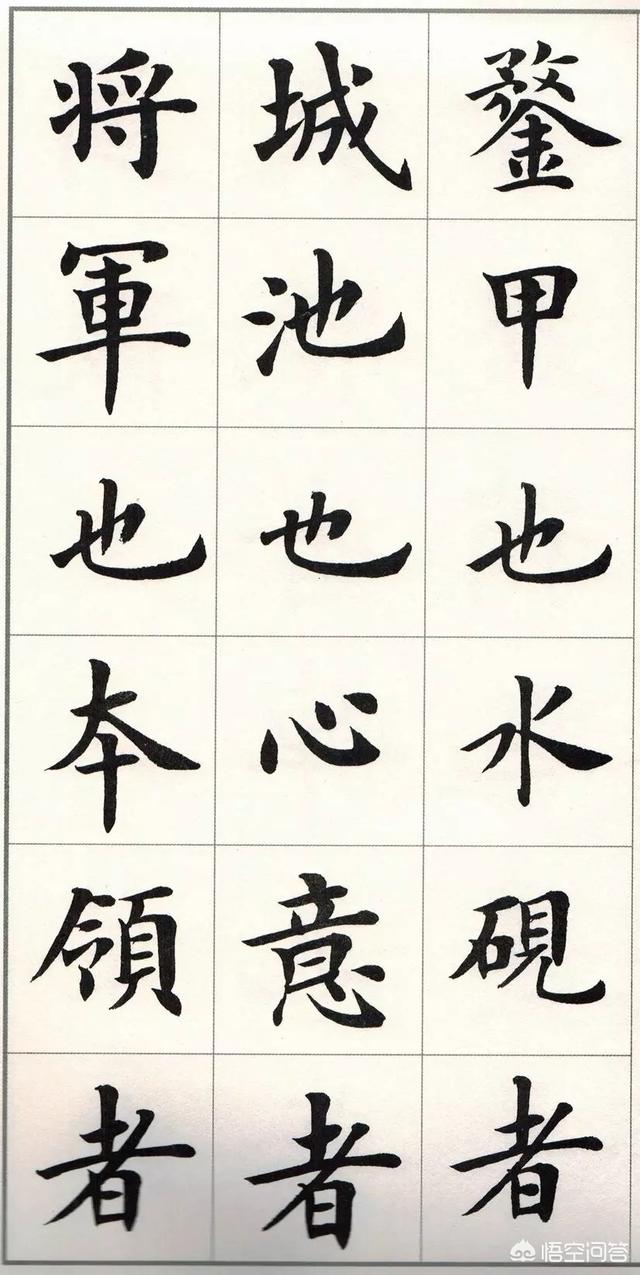 鍪甲也水硯者
城池也心意者
将軍也本領者
悟空问答